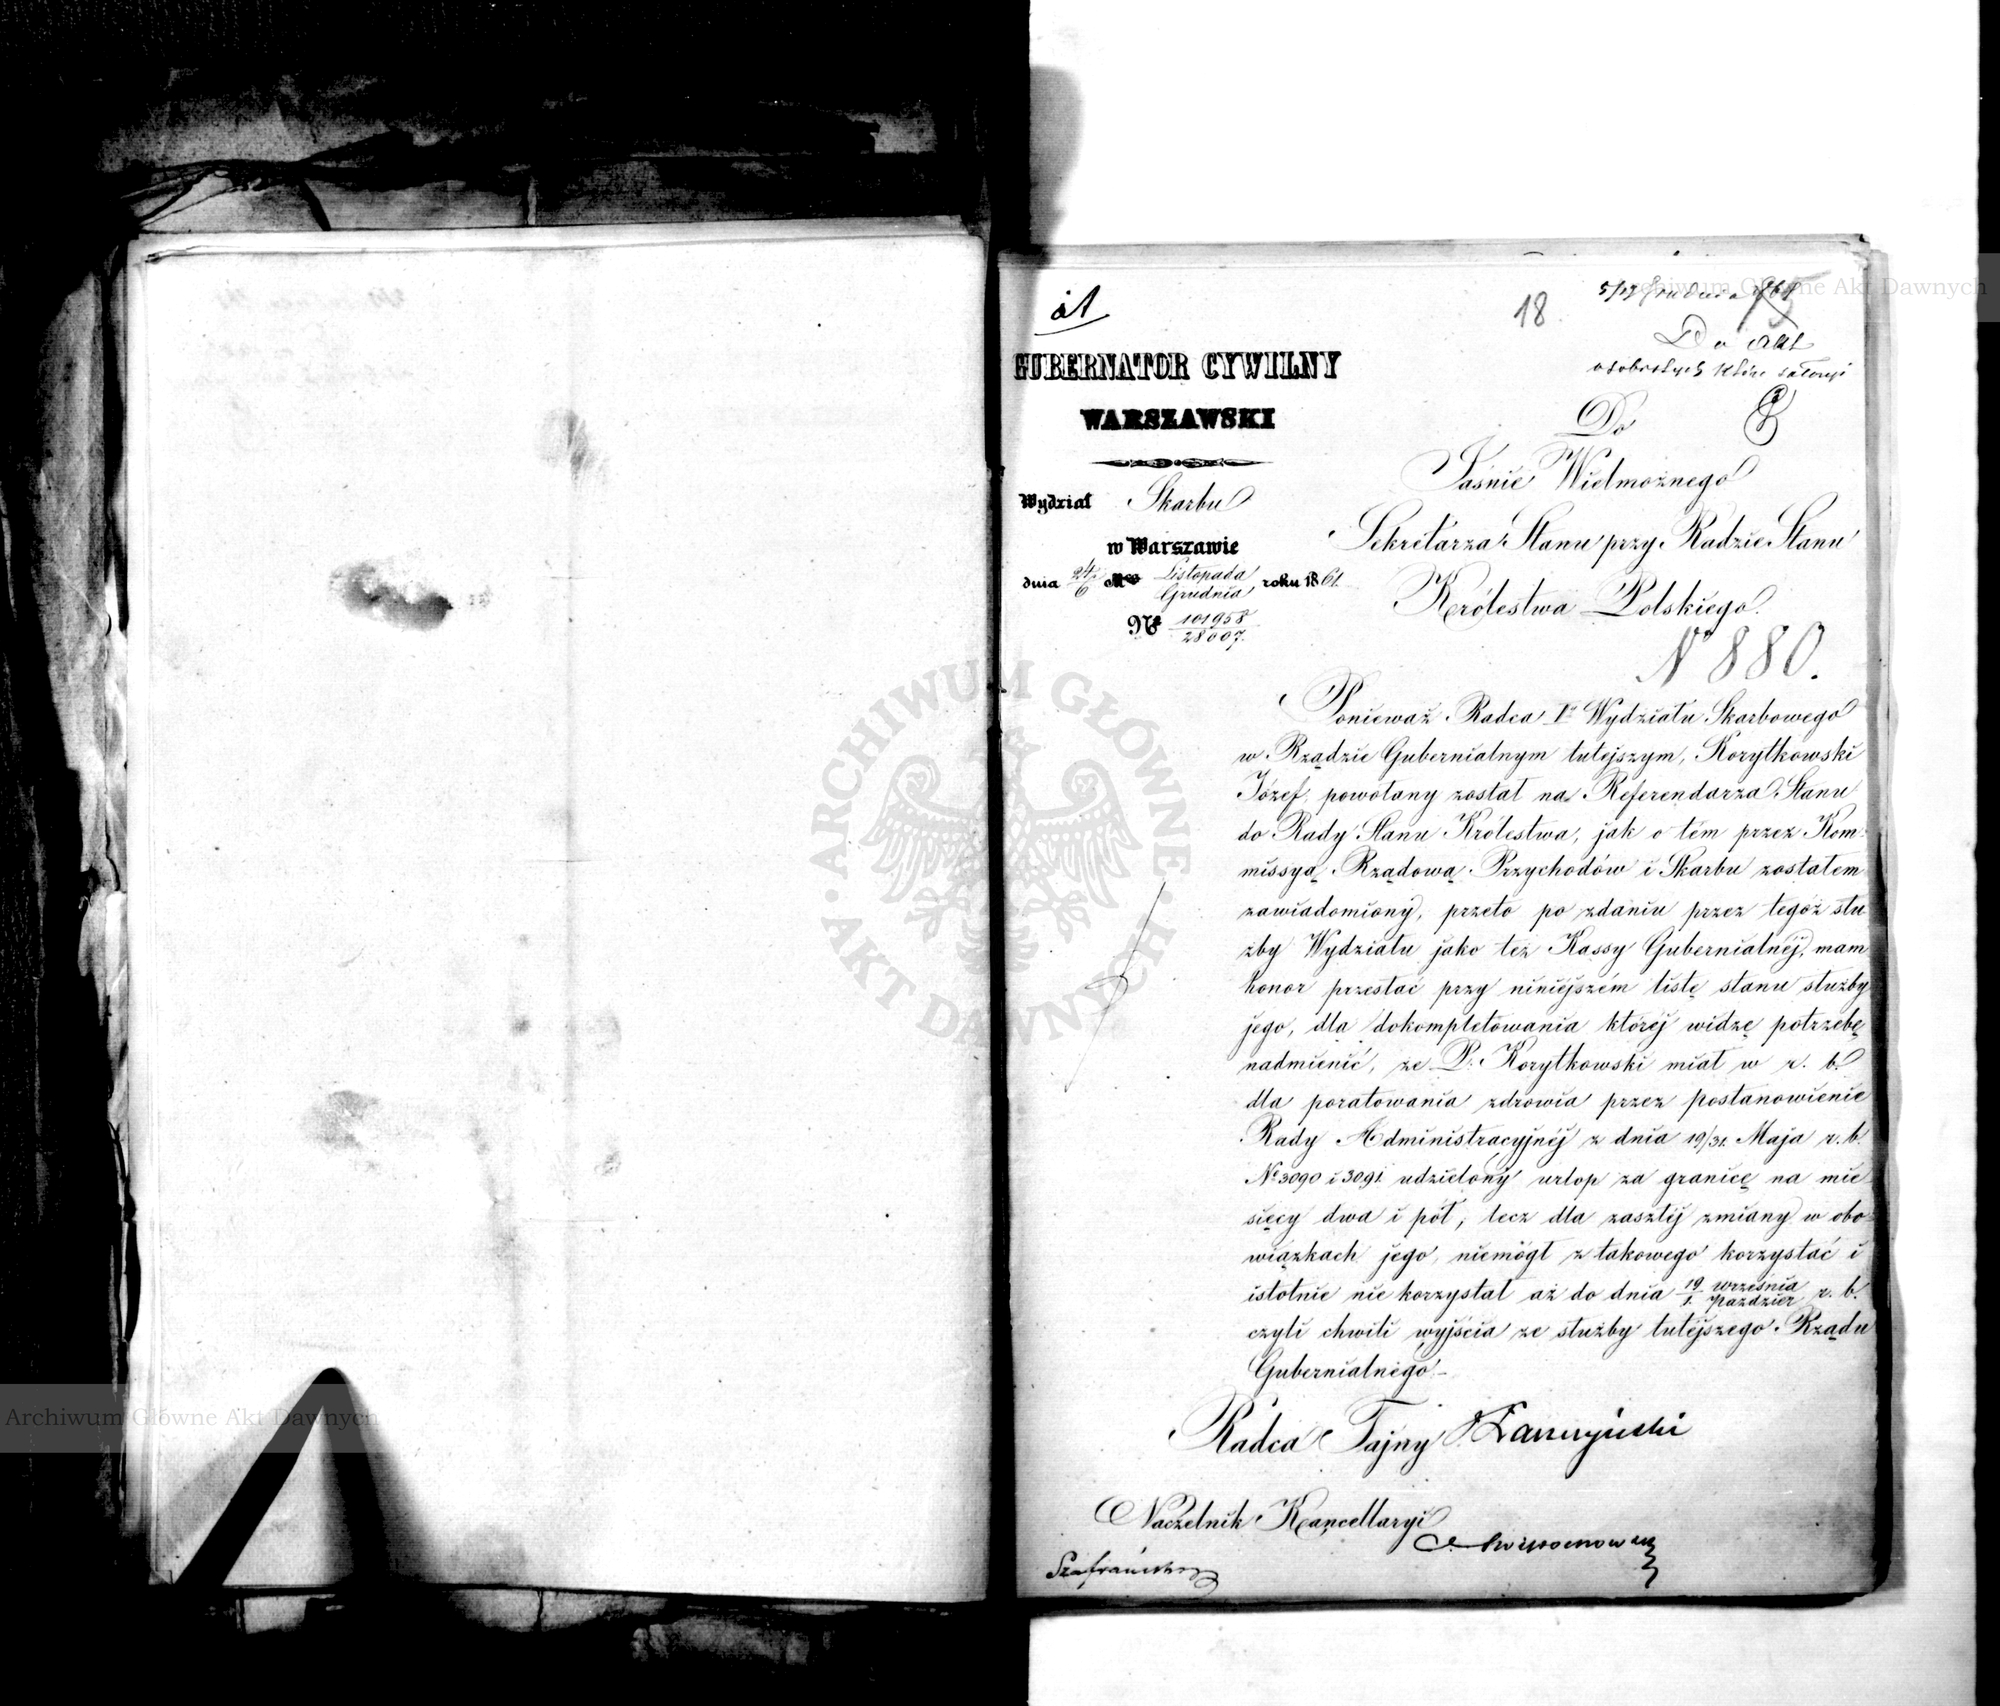 18
5/17 Grudnia 1861
Do Akt
osobistych które założyć
GUBERNATOR CYWILNY
WARSZAWSKI
Wydział Skarbu
w Warszawie
dnia 24/6 Mca Listopada/Grudnia roku 1861.
No 101958/28007.
Do
Jaśnie Wielmożnego
Sekretarza Stanu przy Radzie Stanu
Królestwa Polskiego.
No 880.
Ponieważ Radca Iy Wydziału Skarbowego
w Rządzie Gubernialnym tutejszym, Korytkowski
Józef, powołany został na Referendarza Stanu
do Rady Stanu Królestwa, jak o tém przez Kom-
missyą Rządową Przychodów i Skarbu zostałem
zawiadomiony, przeto po zdaniu przez tegoż słu-
żby Wydziału jako też Kassy Gubernialnéj, mam
honor przesłać przy niniejszém listę stanu służby
jego, dla dokompletowania któréj widzę potrzebę
nadmienić, że P. Korytkowski miał w r. b.
dla poratowania zdrowia przez postanowienie
Rady Administracyjnéj z dnia 19/31 Maja r. b.
No 3090 i 3091 udzielony urlop za granicę na mie-
sięcy dwa i pół, lecz dla zaszłéj zmiany w obo-
wiązkach jego, niemógł z takowego korzystać i
istotnie nie korzystał aż do dnia 19 września/1 Paździer r. b.
czyli chwili wyjścia ze służby tutéjszego Rządu
Gubernialnego.-
Radca Tajny Łaszczyński
Naczelnik Kancellaryi
Szafrański
ARCHIWUM GŁÓWNE AKT DAWNYCH
Archiwum Główne Akt Dawnych
Archiwum Główne Akt Dawnych